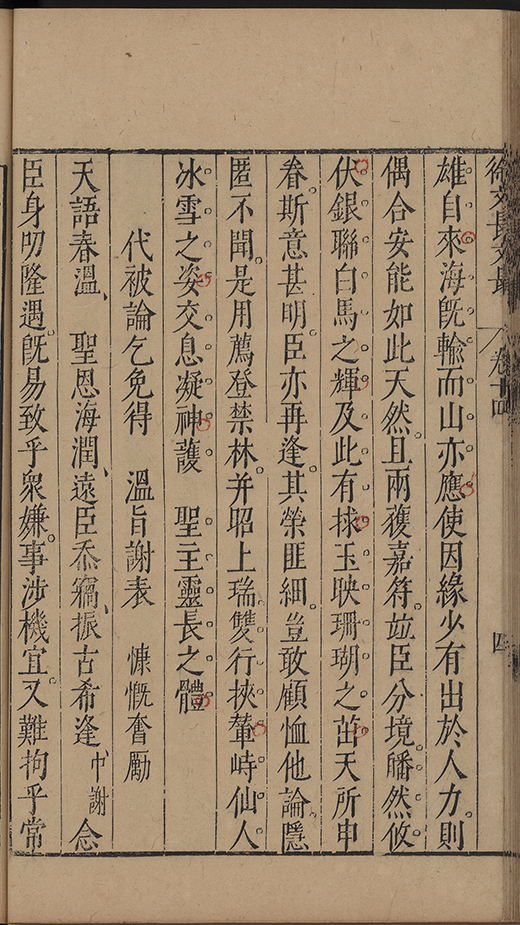 徐文長文長 卷十四 四
雄自來海旣輸而山亦應使因緣少有出於人力則
偶合安能如此天然且兩穫嘉符竝臣分境皤然攸
伏銀聯白馬之輝及此有捄玉映珊瑚之茁天所申
眷斯意甚明臣亦再逢其榮匪細豈敢顧恤他論隱
匿不聞是用薦登禁林并昭上瑞雙行挾輦峙仙人
冰雪之姿交息凝神護 聖主靈長之體
代被論乞免得 溫旨謝表 慷慨奮勵
天語春溫 聖恩海潤遠臣忝竊振古希逢中謝念
臣身叨隆遇旣易致乎衆嫌事涉機宜又難拘乎常